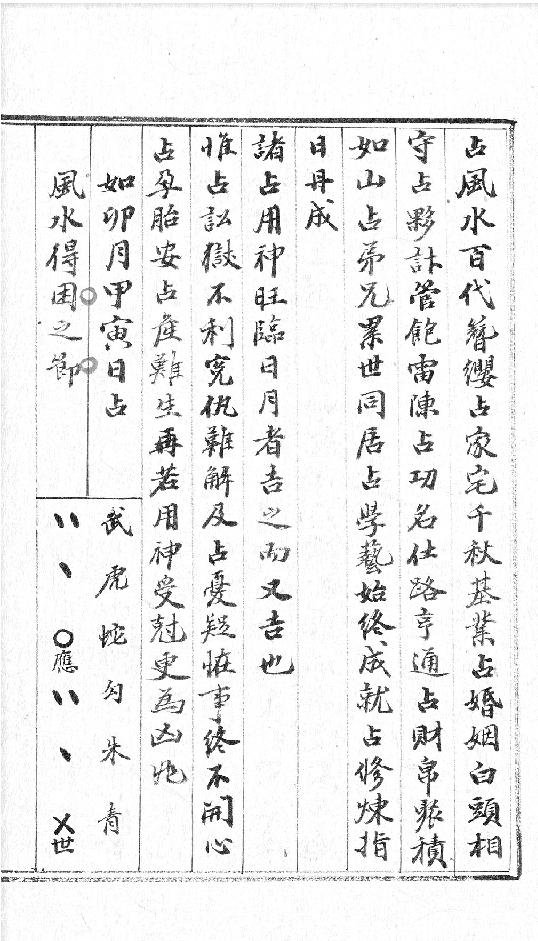 占風水百代簪纓占家宅千秋基業占婚姻白頭相
守占夥計管鮑雷陳占功名仕路亨通占財帛聚積
如山占弟兄累世同居占學藝始終成就占修煉指
日丹成
諸占用神旺臨日月者吉之而又吉也
惟占訟獄不利冤仇難解及占憂疑怪事終不開心
占孕胎安占產難生再若用神受尅更為凶兆
如卯月甲寅日占
風水得困之節
武虎蛇勾朱青
〃、○應〃、乂世